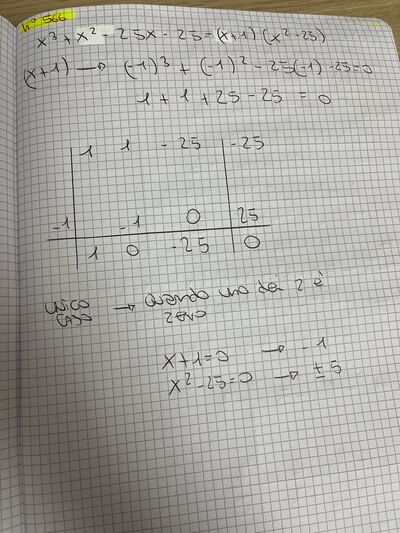 n° 566
x³ + x² - 25x - 25 = (x+1) (x² - 25)
(x+1) → (-1)³ + (-1)² - 25(-1) - 25 = 0
1 + 1 + 25 - 25 = 0
1 1 - 25 - 25
-1 -1 0 25
1 0 -25 0
UNICO CASO → quando uno dei 2 è ZERO
x+1=0 → - 1
x² - 25 = 0 → ± 5